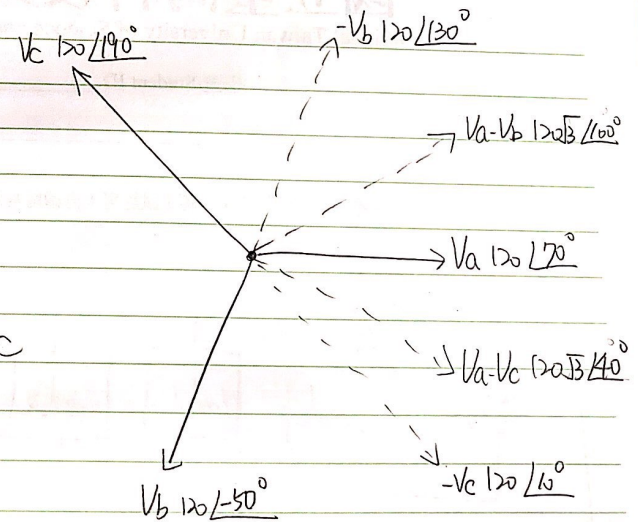 -Vb 120∠130°
Vc 120∠190°
Va-Vb 120√3∠100°
Va 120∠70°
C
Va-Vc 120√3∠40°
-Vc 120∠10°
Vb 120∠-50°